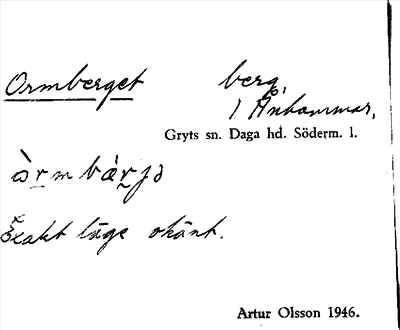 Ormberget berg,
i Änhammar,
Gryts sn. Daga hd. Söderm. l.
Exakt läge okänt.
Artur Olsson 1946.